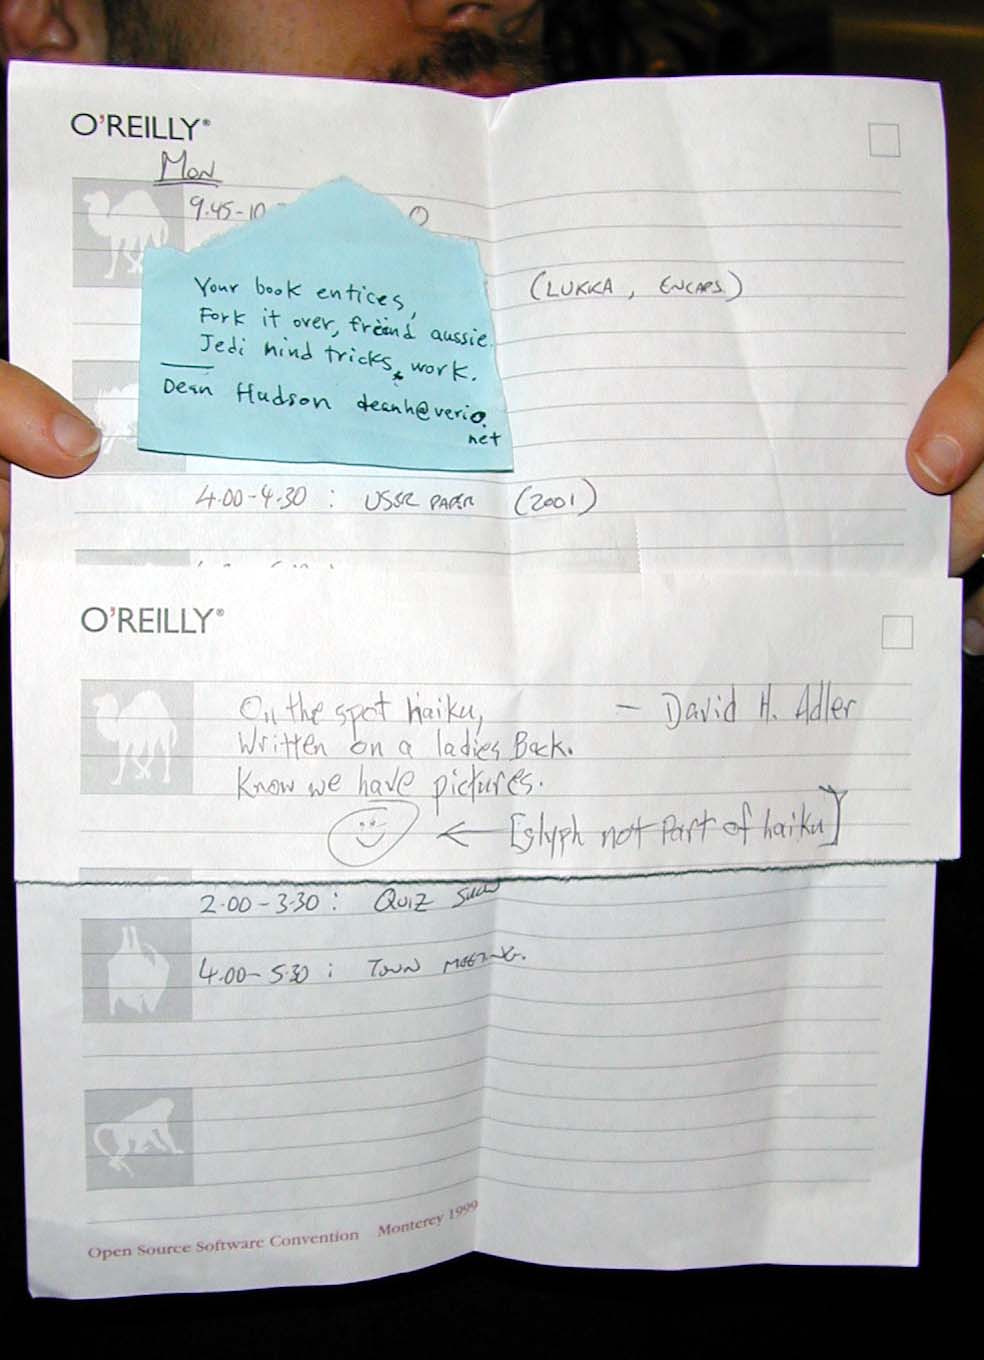 O'REILLY®
Mon
9.45-10
Your book entices,
Fork it over, friend aussie.
Jedi mind tricks, work.
Dean Hudson deanh@verio.
net
(LUKKA, ENCAPS.)
4.00-4.30 : USER PAPER (2001)
O'REILLY®
On the spot haiku, – David H. Adler
Written on a ladies Back.
Know we have pictures.
← [glyph not part of haiku]
2.00-3.30 : QUIZ SHOW
4.00-5.30 : TOWN MEETING.
Open Source Software Convention Monterey 1999